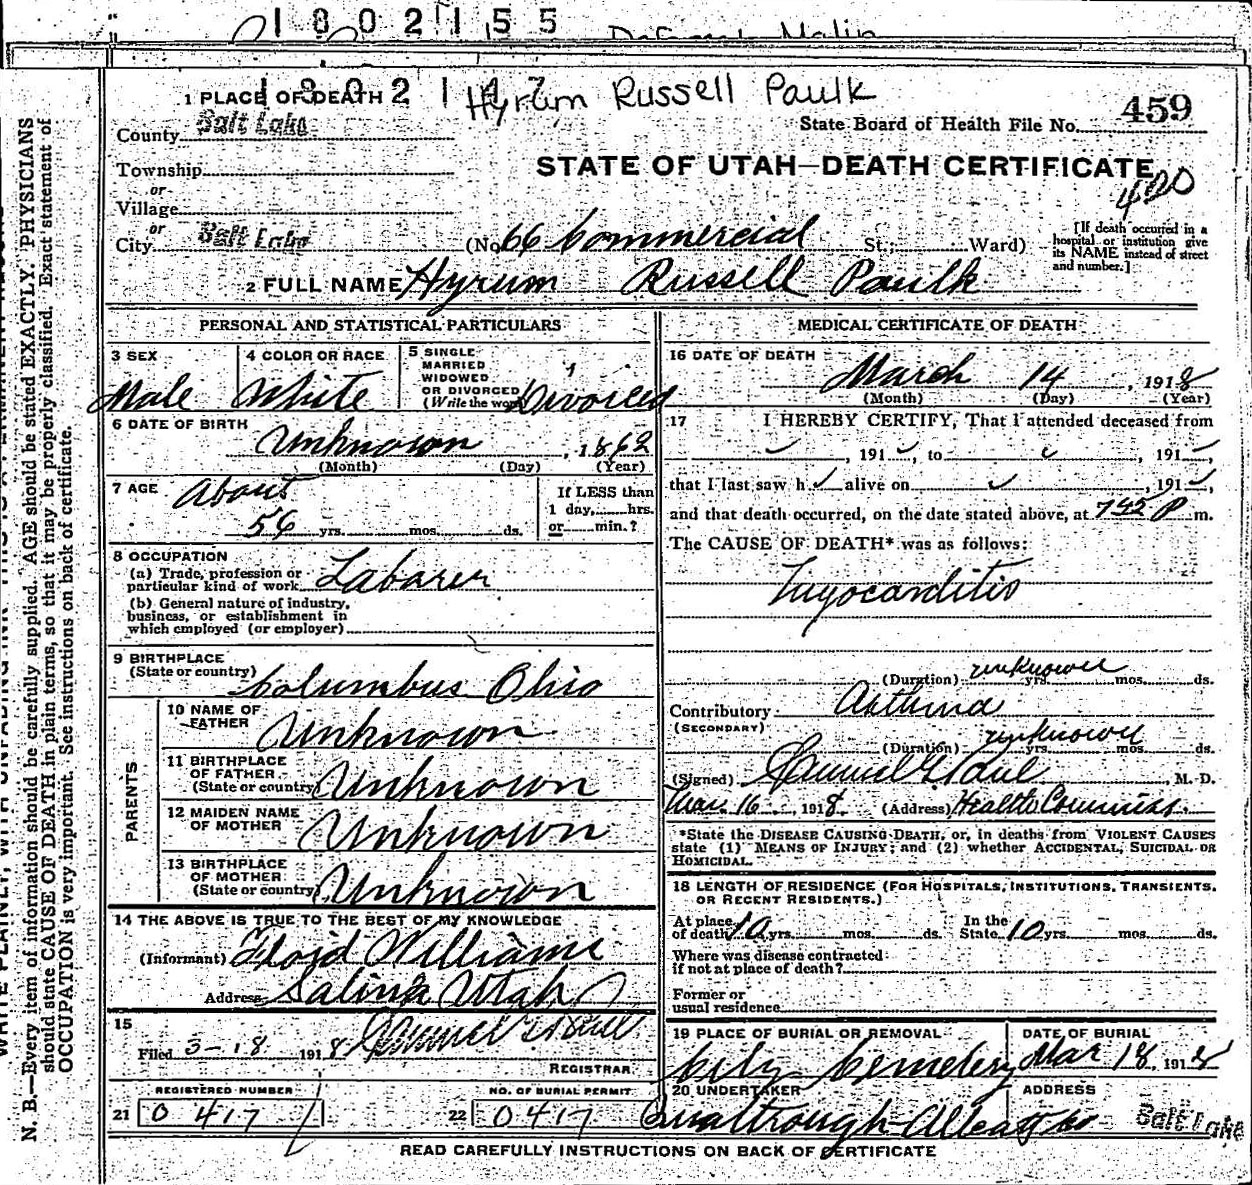 1 8 0 2 1 5 5
Malin
Hyrum Russell Paulk
1 PLACE OF DEATH
County Salt Lake
State Board of Health File No. 459
Township
STATE OF UTAH—DEATH CERTIFICATE
or
Village
or
City Salt Lake (No. 66 Commercial St.; Ward)
[If death occurred in a hospital or institution give its NAME instead of street and number.]
2 FULL NAME Hyrum Russell Paulk
PERSONAL AND STATISTICAL PARTICULARS
3 SEX
Male
4 COLOR OR RACE
White
5 SINGLE
MARRIED
WIDOWED
OR DIVORCED
(Write the word) Divorced
6 DATE OF BIRTH
Unknown, 1862
(Month) (Day) (Year)
7 AGE About
56 yrs. mos. ds.
If LESS than
1 day, hrs.
or min.?
8 OCCUPATION
(a) Trade, profession or
particular kind of work Laborer
(b) General nature of industry,
business, or establishment in
which employed (or employer)
9 BIRTHPLACE
(State or country) Columbus Ohio
PARENTS
10 NAME OF
FATHER Unknown
11 BIRTHPLACE
OF FATHER
(State or country) Unknown
12 MAIDEN NAME
OF MOTHER Unknown
13 BIRTHPLACE
OF MOTHER
(State or country) Unknown
14 THE ABOVE IS TRUE TO THE BEST OF MY KNOWLEDGE
(Informant) Floyd Williams
Address Salina Utah
15
Filed 3-18 1918
REGISTRAR
REGISTERED NUMBER
21 0 417
NO. OF BURIAL PERMIT
22 0417
MEDICAL CERTIFICATE OF DEATH
16 DATE OF DEATH
March 14, 1918
(Month) (Day) (Year)
17 I HEREBY CERTIFY, That I attended deceased from
, 191 , to , 191 ,
that I last saw h alive on , 191 ,
and that death occurred, on the date stated above, at 7 45 P m.
The CAUSE OF DEATH* was as follows:
Myocarditis
(Duration) unknown yrs. mos. ds.
Contributory Asthma
(SECONDARY)
(Duration) unknown yrs. mos. ds.
(Signed) Samuel G Paul M. D.
Mar. 16 1918 (Address) Health Commiss.
*State the DISEASE CAUSING DEATH, or, in deaths from VIOLENT CAUSES
state (1) MEANS OF INJURY; and (2) whether ACCIDENTAL, SUICIDAL OR
HOMICIDAL.
18 LENGTH OF RESIDENCE (FOR HOSPITALS, INSTITUTIONS, TRANSIENTS,
OR RECENT RESIDENTS.)
At place
of death 10 yrs. mos. ds. In the State 10 yrs. mos. ds.
Where was disease contracted
if not at place of death?
Former or
usual residence
19 PLACE OF BURIAL OR REMOVAL
City Cemetery
DATE OF BURIAL
Mar 18, 1918
20 UNDERTAKER
ADDRESS
Salt Lake
READ CAREFULLY INSTRUCTIONS ON BACK OF CERTIFICATE
N. B.—Every item of information should be carefully supplied. AGE should be stated EXACTLY. PHYSICIANS
should state CAUSE OF DEATH in plain terms, so that it may be properly classified. Exact statement of
OCCUPATION is very important. See instructions on back of certificate.